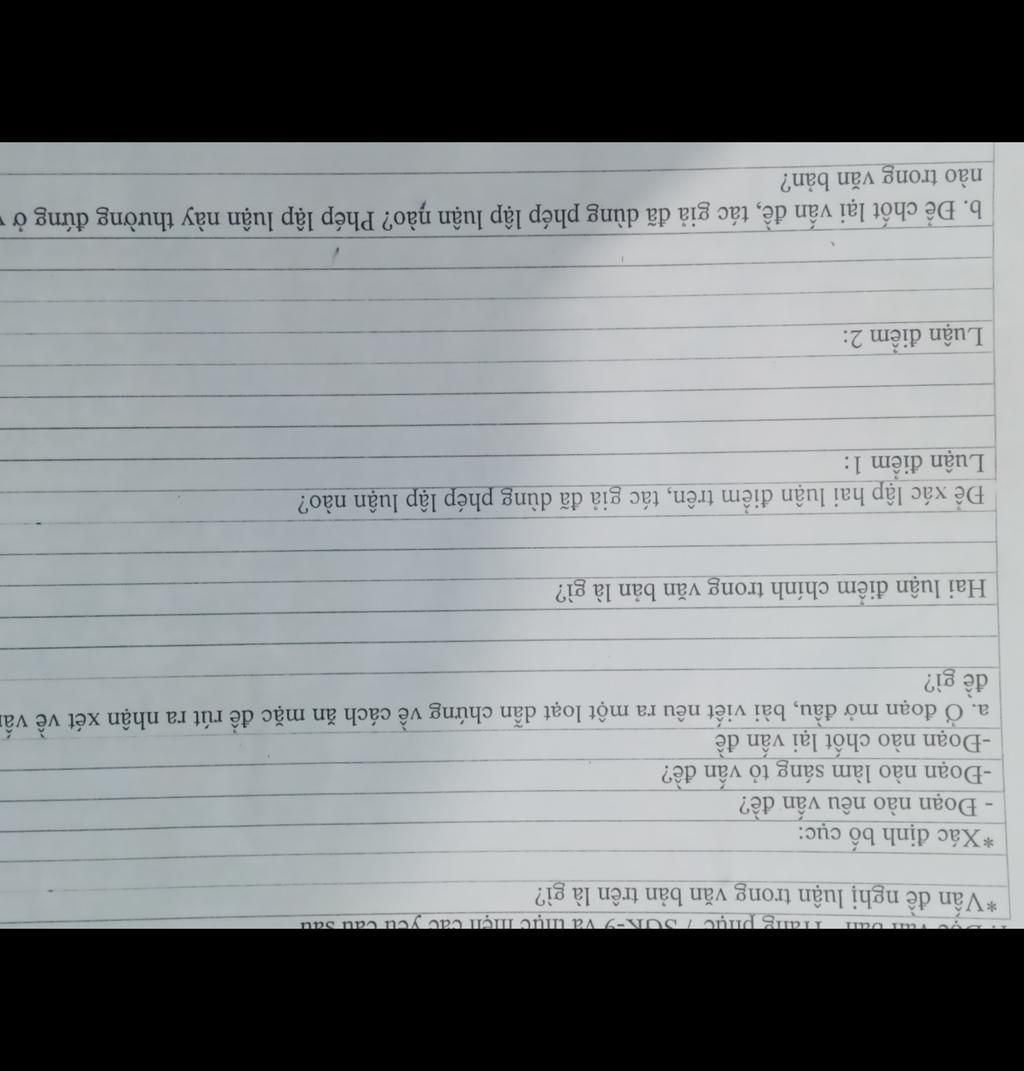 văn bản "Trang phục" / SGK-9 và thực hiện các yêu cầu sau
*Vấn đề nghị luận trong văn bản trên là gì?
*Xác định bố cục:
- Đoạn nào nêu vấn đề?
-Đoạn nào làm sáng tỏ vấn đề?
-Đoạn nào chốt lại vấn đề
a. Ở đoạn mở đầu, bài viết nêu ra một loạt dẫn chứng về cách ăn mặc để rút ra nhận xét về vấn
đề gì?
Hai luận điểm chính trong văn bản là gì?
Để xác lập hai luận điểm trên, tác giả đã dùng phép lập luận nào?
Luận điểm 1:
Luận điểm 2:
b. Để chốt lại vấn đề, tác giả đã dùng phép lập luận nào? Phép lập luận này thường đứng ở
nào trong văn bản?